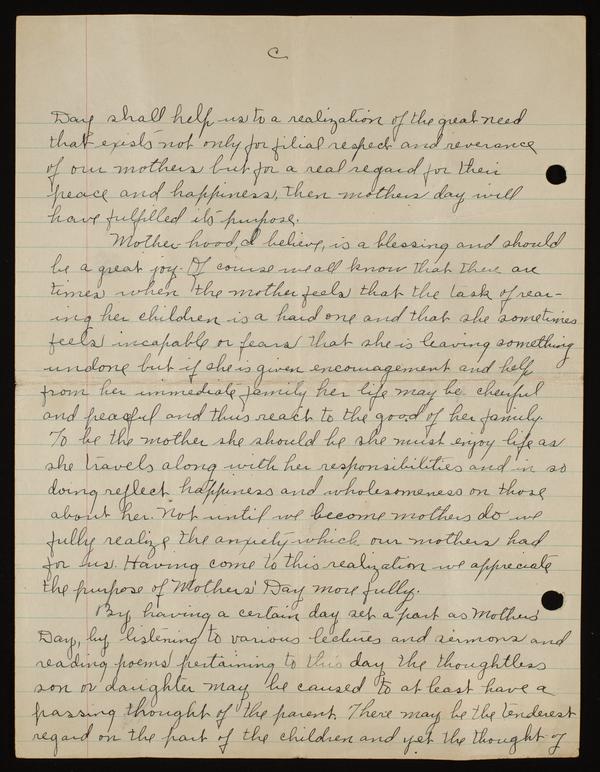 C
Day shall help us to a realization of the great need
that exists not only for filial respect and reverance
of our mothers but for a real regard for their
peace and happiness, then mothers day will
have fulfilled its purpose.
Mother hood, I believe, is a blessing and should
be a great joy. Of course we all know that there are
times when the mother feels that the task of rear-
ing her children is a hard one and that she sometimes
feels incapable or fears that she is leaving something
undone but if she is given encouragement and help
from her immediate family her life may be cheerful
and peaceful and thus react to the good of her family.
To be the mother she should be she must enjoy life as
she travels along with her responsibilities and in so
doing reflect happiness and wholesomeness on those
about her. Not until we become mothers do we
fully realize the anxiety which our mothers had
for us. Having come to this realization we appreciate
the purpose of Mothers' Day more fully.
By having a certain day set a part as Mothers'
Day, by listening to various lectures and sermons and
reading poems pertaining to this day the thoughtless
son or daughter may be caused to at least have a
passing thought of the parent. There may be the tenderest
regard on the part of the children and yet the thought of